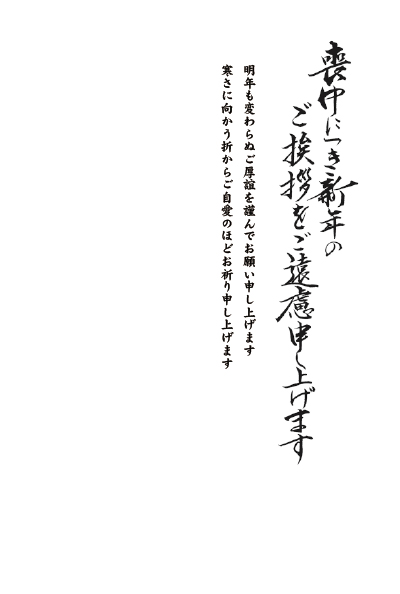 喪中につき新年の
ご挨拶をご遠慮申し上げます
明年も変わらぬご厚誼を謹んでお願い申し上げます
寒さに向かう折からご自愛のほどお祈り申し上げます